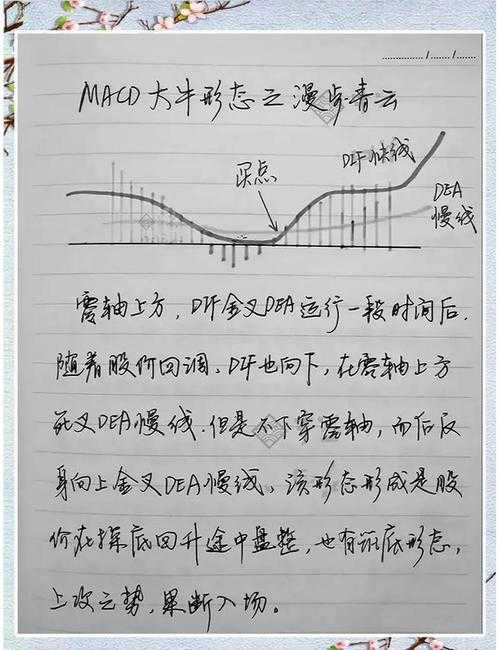 MACD大牛形态之漫步青云
买点
DIF快线
DEA
慢线
零轴上方，DIF金叉DEA运行一段时间后.
随着股价回调、DIF也向下，在零轴上方
死叉DEA慢线.但是不下穿零轴，而后反
身向上金叉DEA慢线，该形态形成是股
价在探底回升途中盘整，也有筑底形态，
上攻之势，果断入场。